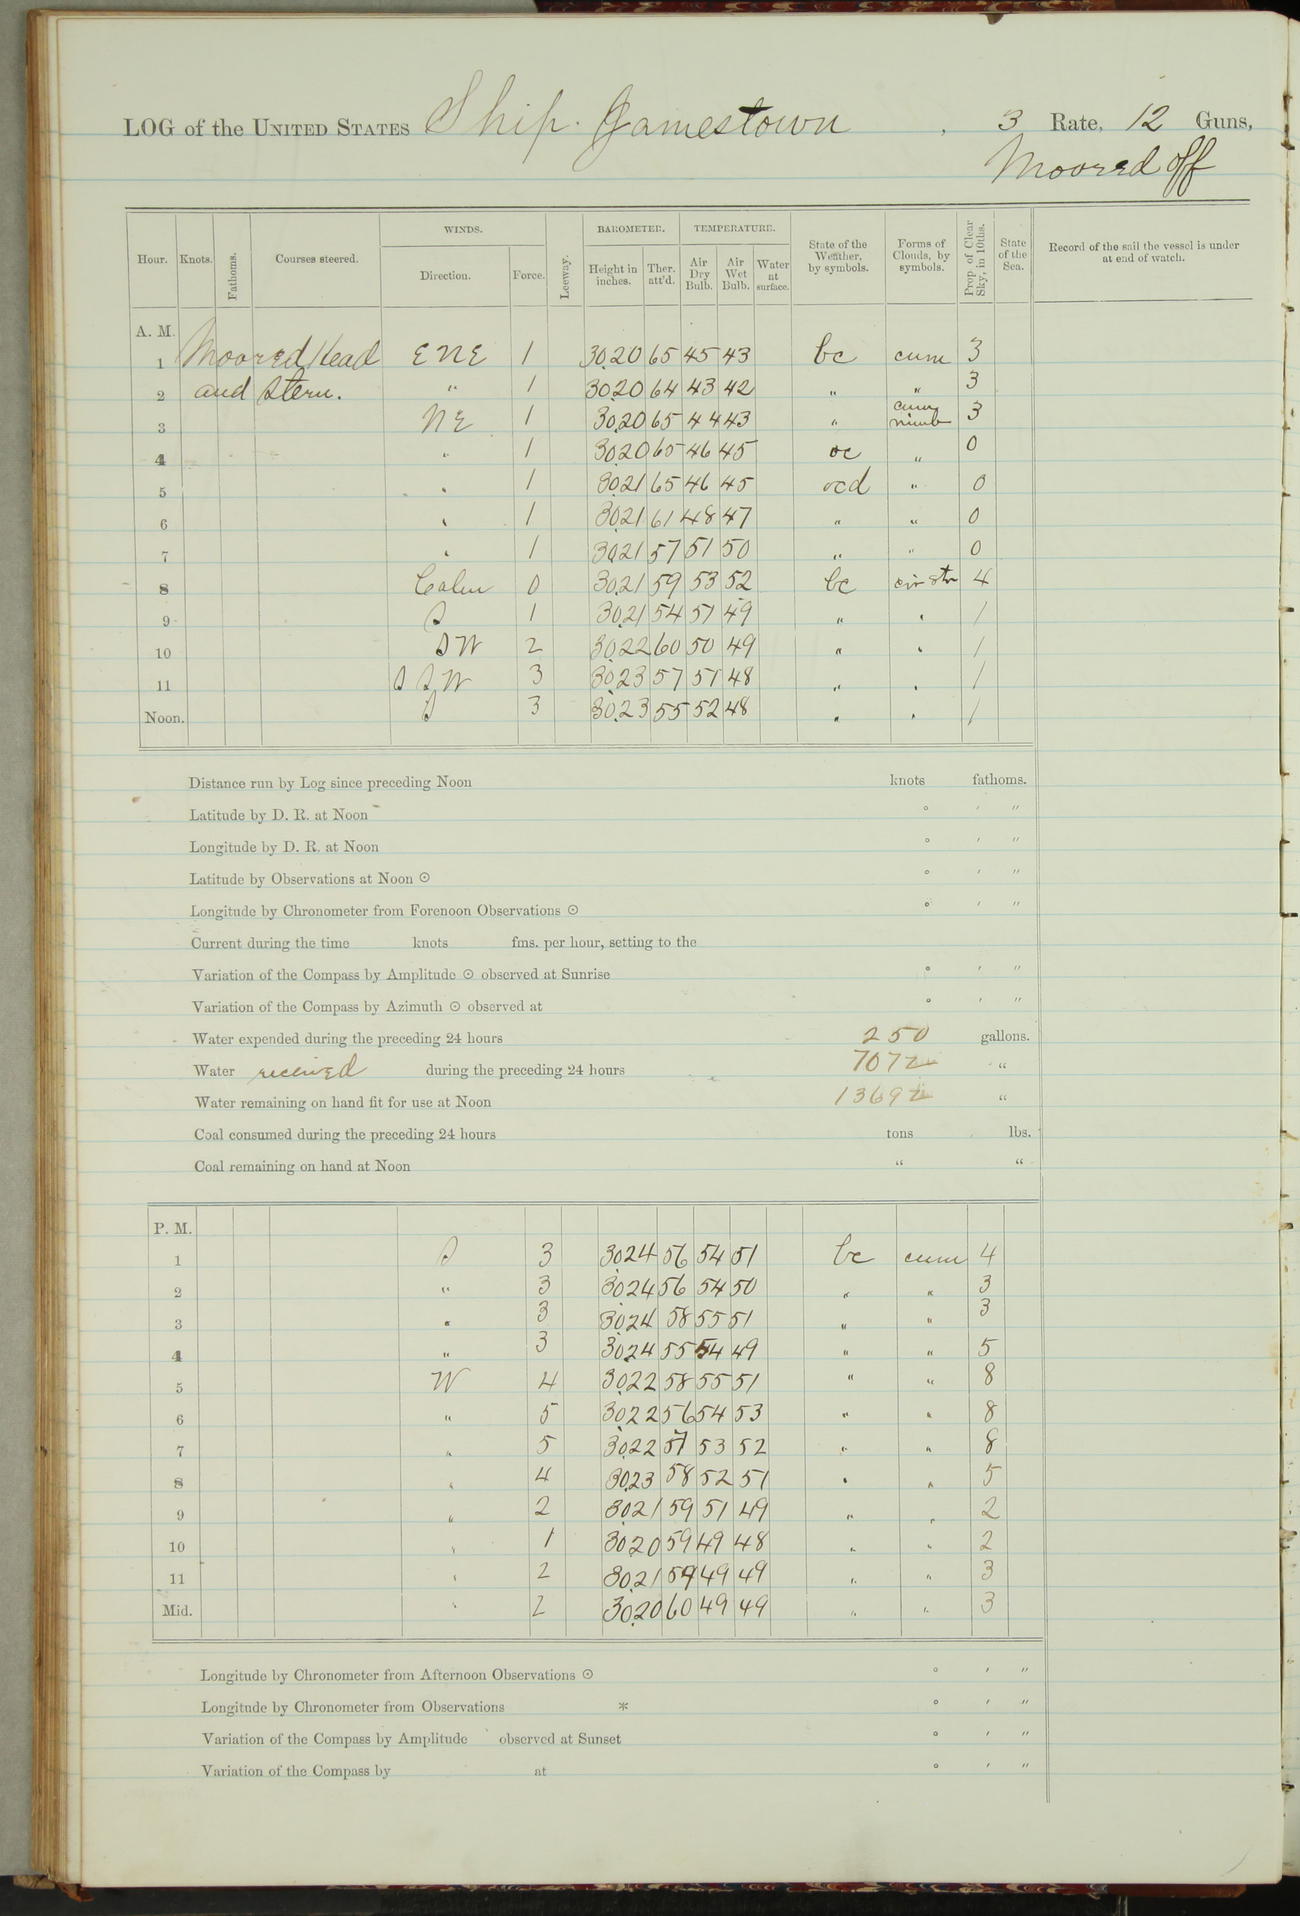 LOG of the UNITED STATES Ship Jamestown, 3 Rate, 12 Guns,
Moored off
Hour. Knots. Fathoms. Courses steered. WINDS. Direction. Force. Leeway. BAROMETER. Height in inches. Ther. att'd. TEMPERATURE. Air Dry Bulb. Air Wet Bulb. Water at surface. State of the Weather, by symbols. Forms of Clouds, by symbols. Prop. of Clear Sky, in 10ths. State of the Sea. Record of the sail the vessel is under at end of watch.
A. M.
1 Moored Head ENE 1 30.20 65 45 43 bc cum 3
2 and Stern. " 1 30.20 64 43 42 " " 3
3 NE 1 30.20 65 44 43 " cum nimb 3
4 " 1 30.20 65 46 45 oc " 0
5 " 1 30.21 65 46 45 ocd " 0
6 " 1 30.21 61 48 47 " " 0
7 " 1 30.21 57 51 50 " " 0
8 Calm 0 30.21 59 53 52 bc cir str 4
9 S 1 30.21 54 51 49 " " 1
10 SW 2 30.22 60 50 49 " " 1
11 SSW 3 30.23 57 51 48 " " 1
Noon. S 3 30.23 55 52 48 " " 1
Distance run by Log since preceding Noon knots fathoms.
Latitude by D. R. at Noon ° ′ ″
Longitude by D. R. at Noon ° ′ ″
Latitude by Observations at Noon ☉ ° ′ ″
Longitude by Chronometer from Forenoon Observations ☉ ° ′ ″
Current during the time knots fms. per hour, setting to the
Variation of the Compass by Amplitude ☉ observed at Sunrise ° ′ ″
Variation of the Compass by Azimuth ☉ observed at ° ′ ″
Water expended during the preceding 24 hours 250 gallons.
Water received during the preceding 24 hours 7072 "
Water remaining on hand fit for use at Noon "
Coal consumed during the preceding 24 hours tons lbs.
Coal remaining on hand at Noon " "
P. M.
1 S 3 30.24 56 54 51 bc cum 4
2 " 3 30.24 56 54 50 " " 3
3 " 3 30.24 58 55 51 " " 3
4 " 3 30.24 55 54 49 " " 5
5 W 4 30.22 58 55 51 " " 8
6 " 5 30.22 56 54 53 " " 8
7 " 5 30.22 57 53 52 " " 8
8 " 4 30.23 58 52 51 " " 5
9 " 2 30.21 59 51 49 " " 2
10 " 1 30.20 59 49 48 " " 2
11 " 2 30.21 59 49 49 " " 3
Mid. " 2 30.20 60 49 49 " " 3
Longitude by Chronometer from Afternoon Observations ☉ ° ′ ″
Longitude by Chronometer from Observations * ° ′ ″
Variation of the Compass by Amplitude observed at Sunset ° ′ ″
Variation of the Compass by at ° ′ ″